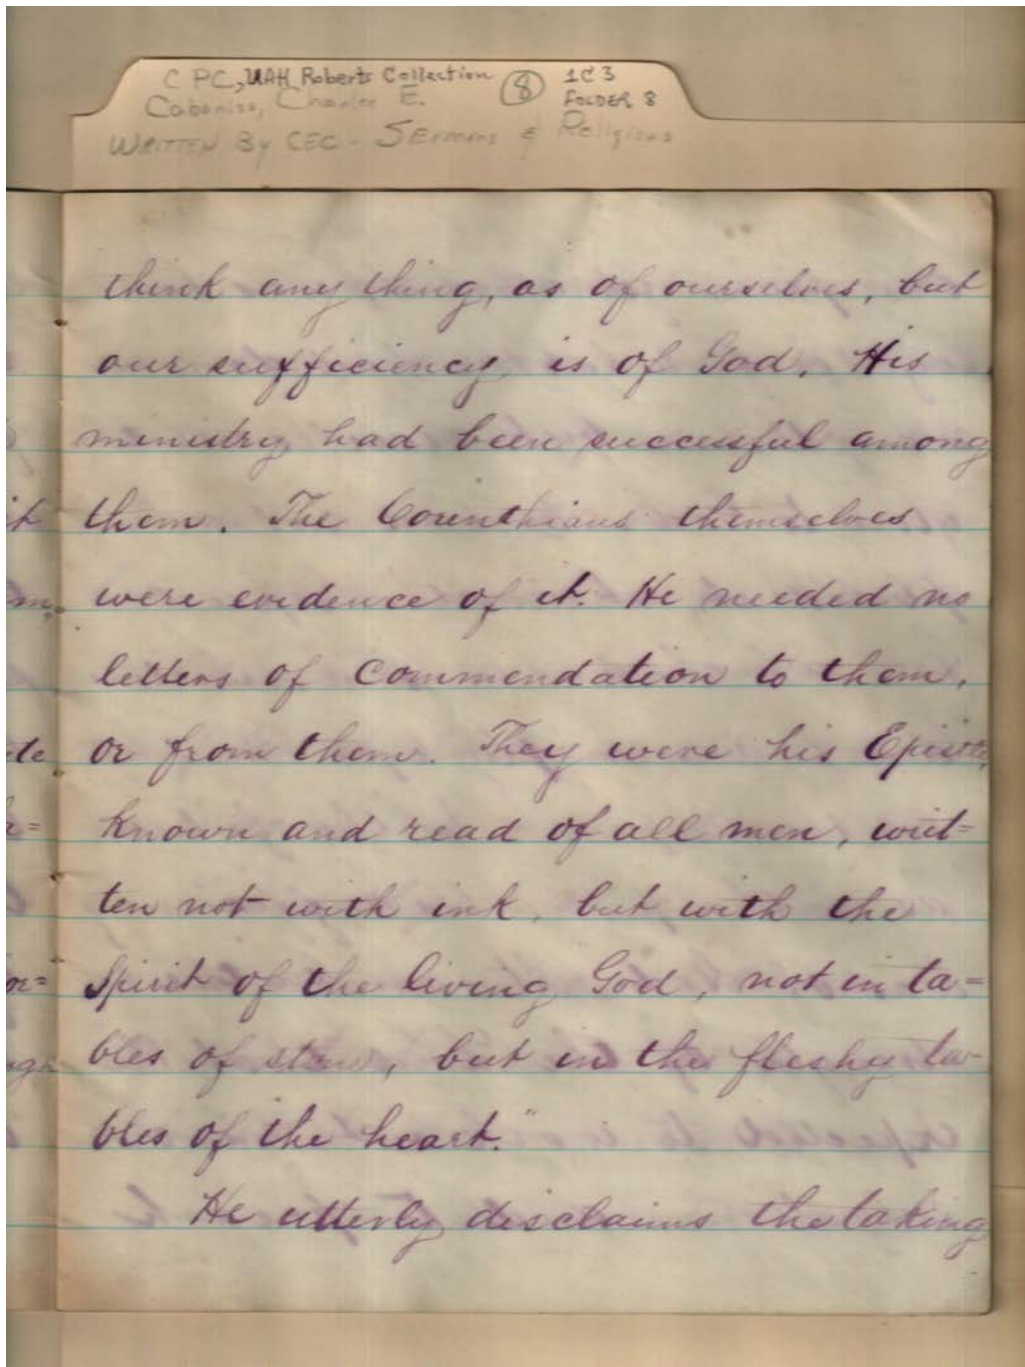 C PC, UAH Roberts Collection (8) 1C3
Cabaniss, Charles E. FOLDER 8
WRITTEN By CEC - SERMONS & Religious
think any thing, as of ourselves, but
our sufficiency, is of God. His
ministry had been successful among
it them. The Corinthians themselves
m, were evidence of it. He needed no
letters of commendation to them,
te or from them. They were his Epistle,
= known and read of all men, writ=
ten not with ink, but with the
= Spirit of the living God, not in ta=
bles of stone, but in the fleshy ta-
bles of the heart."
He utterly disclaims the taking